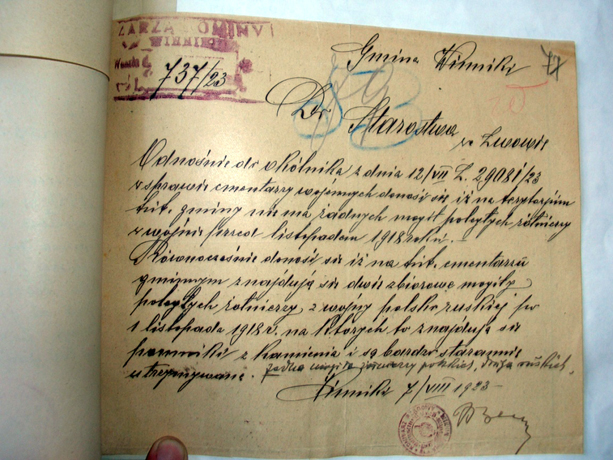 ZARZĄD GMINY
WINNIKI
737/23
Gmina Winniki
77
Do Starostwa
we Lwowie
Odnośnie do okólnika z dnia 12/VII L. 29081/23
w sprawie cmentarzy wojennych donosi się iż na terytorjum
tut. gminy nie ma żadnych mogił poległych żołnierzy
w wojnie przed listopadem 1918 roku. —
Równocześnie donosi się iż na tut. cmentarzu
gminnym znajdują się dwie zbiorowe mogiły
poległych żołnierzy z wojny polsko ruskiej po
1 listopada 1918 r. na których to znajduje się
pomniki z kamienia i są bardzo starannie
utrzymywane. jedna mogiła żołnierzy polskich, druga ruskich.
Winniki 7/VIII 1923